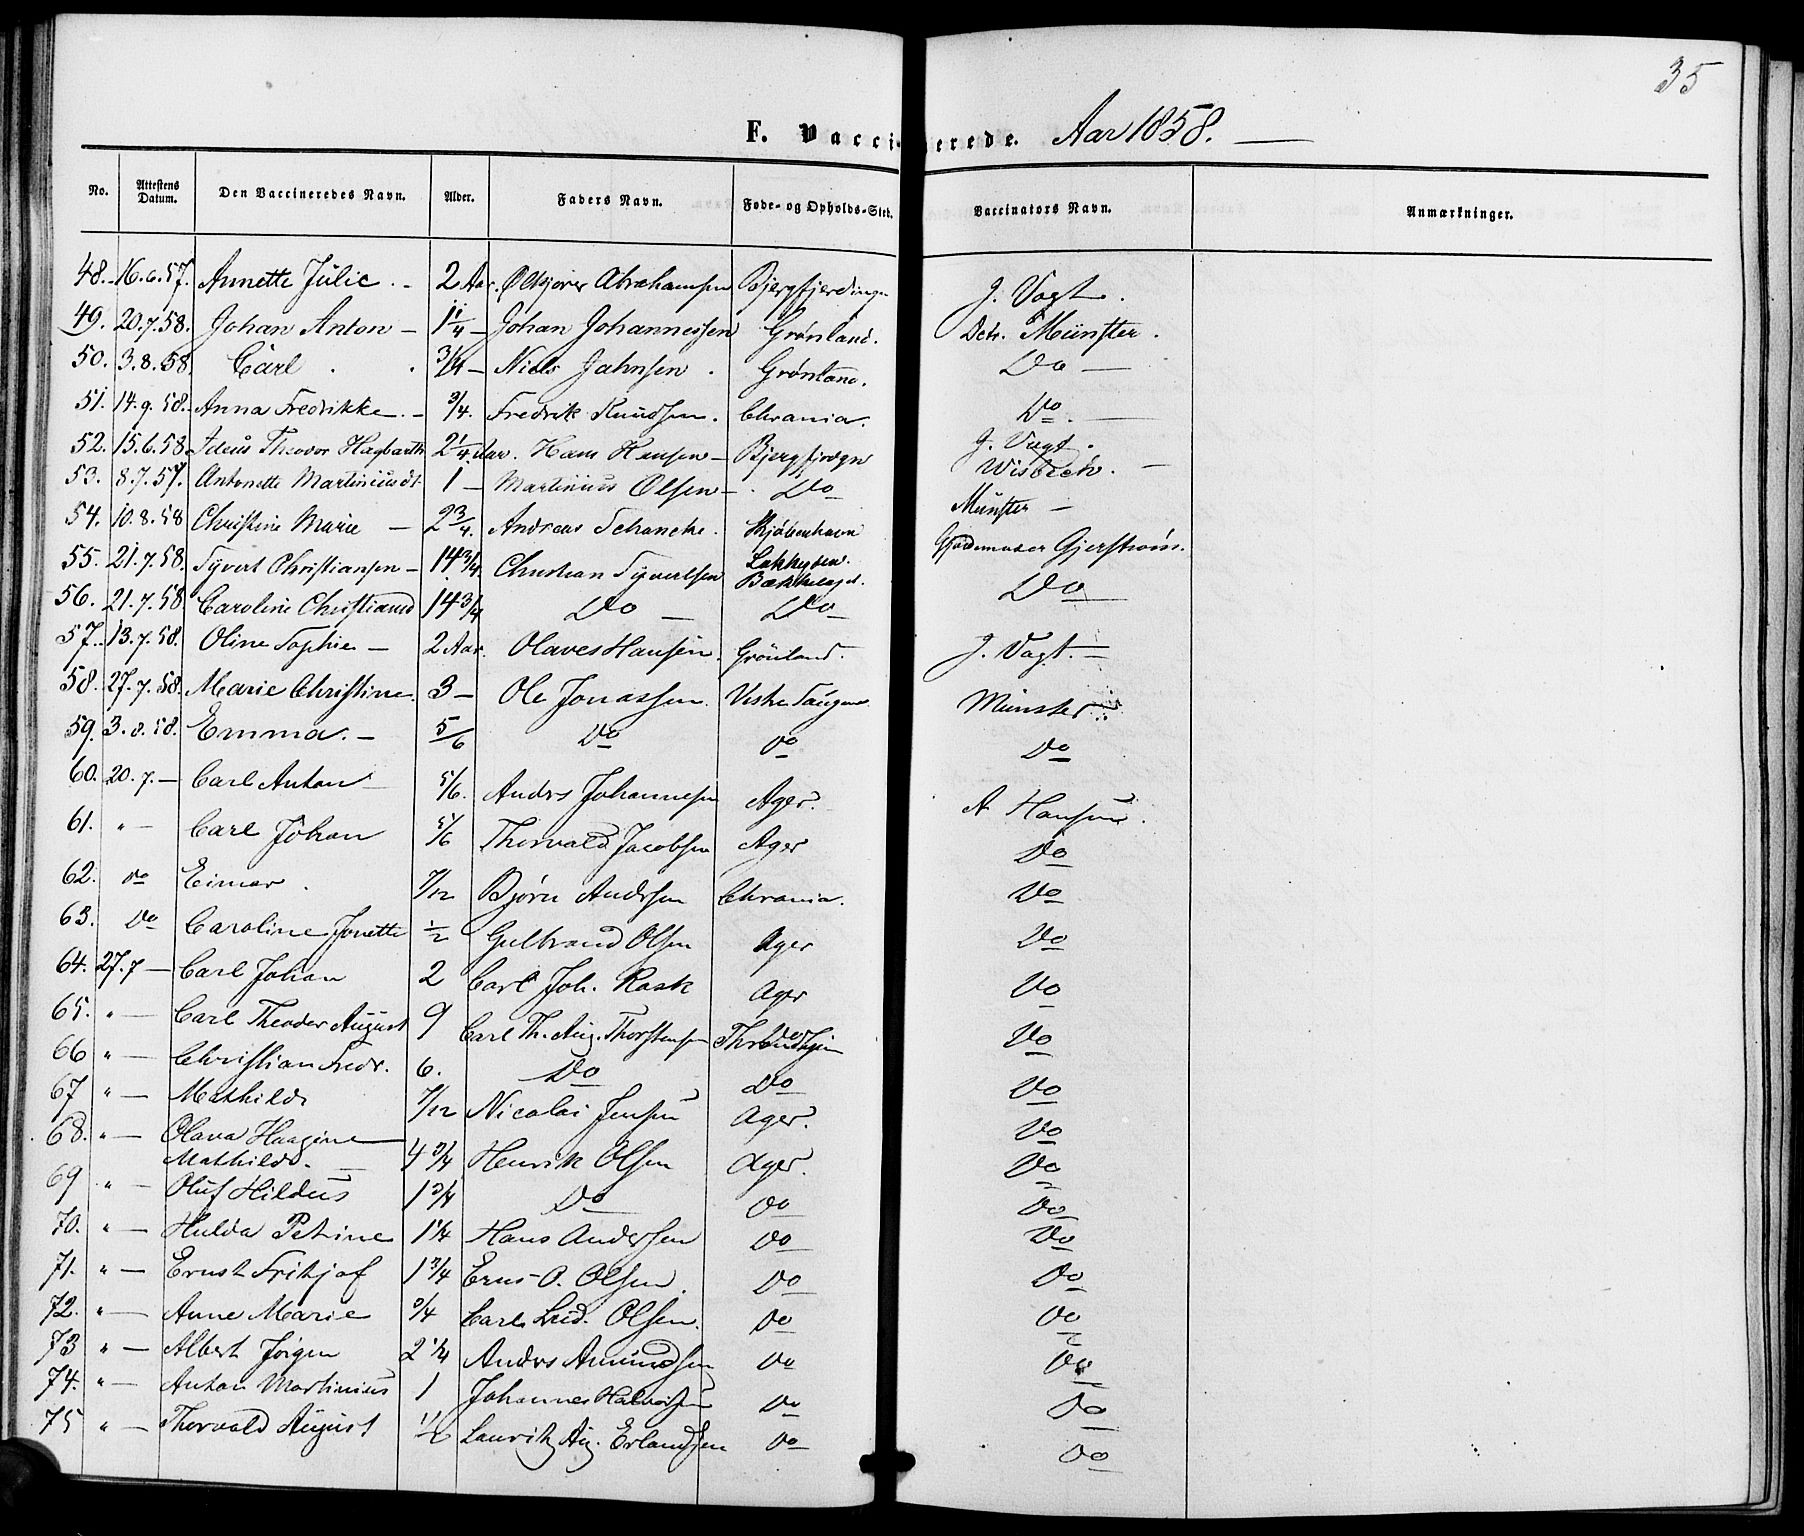 35
F. Vaccinerede. Aar 1858.
No. Attestens Datum. Den Vaccineredes Navn. Alder. Faders Navn. Føde- og Opholds-Sted. Vaccinators Navn. Anmærkninger.
48. 16.6.57. Annette Julie. 2 Aar. Abrahamsen J. Vogt.
49. 20.7.58. Johan Anton 1 1/4 Johan Johannessen Grønland. Münster.
50. 3.8.58. Carl 3/4 Niels Jahnsen Grønland. Do
51. 14.9.58. Anna Fredrikke. 3/4. Fredrik Knudsen. Chrania. Do.
52. 15.6.58. Theodor Hagbarth 2 1/4. Aar. Hans Hansen J. Vogt.
53. 8.7.57. Antonette Martiniusdt 1 Martinius Olsen Do Wisbech.
54. 10.8.58 Christine Marie 2 3/4. Andreas Schancke. Kjøbenhavn Münster
55. 21.7.58. Syvert Christiansen 14 3/4. Christian Syvertsen Bækkelaget. Gjerstrøm.
56. 21.7.58. Caroline Christiansd 14 3/4 Do Do Do
57. 13.7.58. Oline Sophie 2 Aar. Olaves Hansen. Grønland. J. Vogt.
58. 27.7.58. Marie Christine. 3 Ole Jonassen. Münster
59. 3.8.58. Emma. 5/6 Do Do Do
60. 20.7. Carl Anton 5/6. Andrs Johannesen Ager. A Hansen.
61. " Carl Johan 5/6 Thorvald Jacobsen Ager Do
62. do Eimar. 7/12 Bjørn Andersen Chrania. Do
63. Do Caroline Jonette 1/2 Gulbrand Olsen Ager Do
64. 27.7 Carl Johan 2 Carl Joh. Rask Ager Do
65. " Carl Theodor August 9 Carl Th. Aug. Thorstensen Throndhjem Do
66 " Christian Fredr. 6. Do Do Do
67 " Mathilde 7/12 Nicolai Jensen Ager. Do
68. " Olava Haagine
Mathilde. 4 3/4 Henrik Olsen Ager. Do
69 " Oluf Hildus 1 3/4 Do Do Do
70. " Hulda Petrine 1 1/4 Hans Andersen Do Do
71. " Ernst Frithjof 1 3/4 Erns O. Olsen. Do Do
72. " Anne Marie 3/4 Carl Lud. Olsen. Do Do
73 " Albert Jørgen 2 1/4 Andrs Amundsen Do Do
74. " Anton Martinius 1 Johannes Halvorsen Do Do
75 " Thorvald August 1/2 Lauritz Aug. Erlandsen Do Do